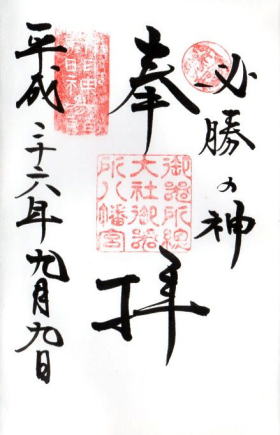 必勝の神
奉拝
御所総
大社御
所八幡宮
平成二十六年九月九日